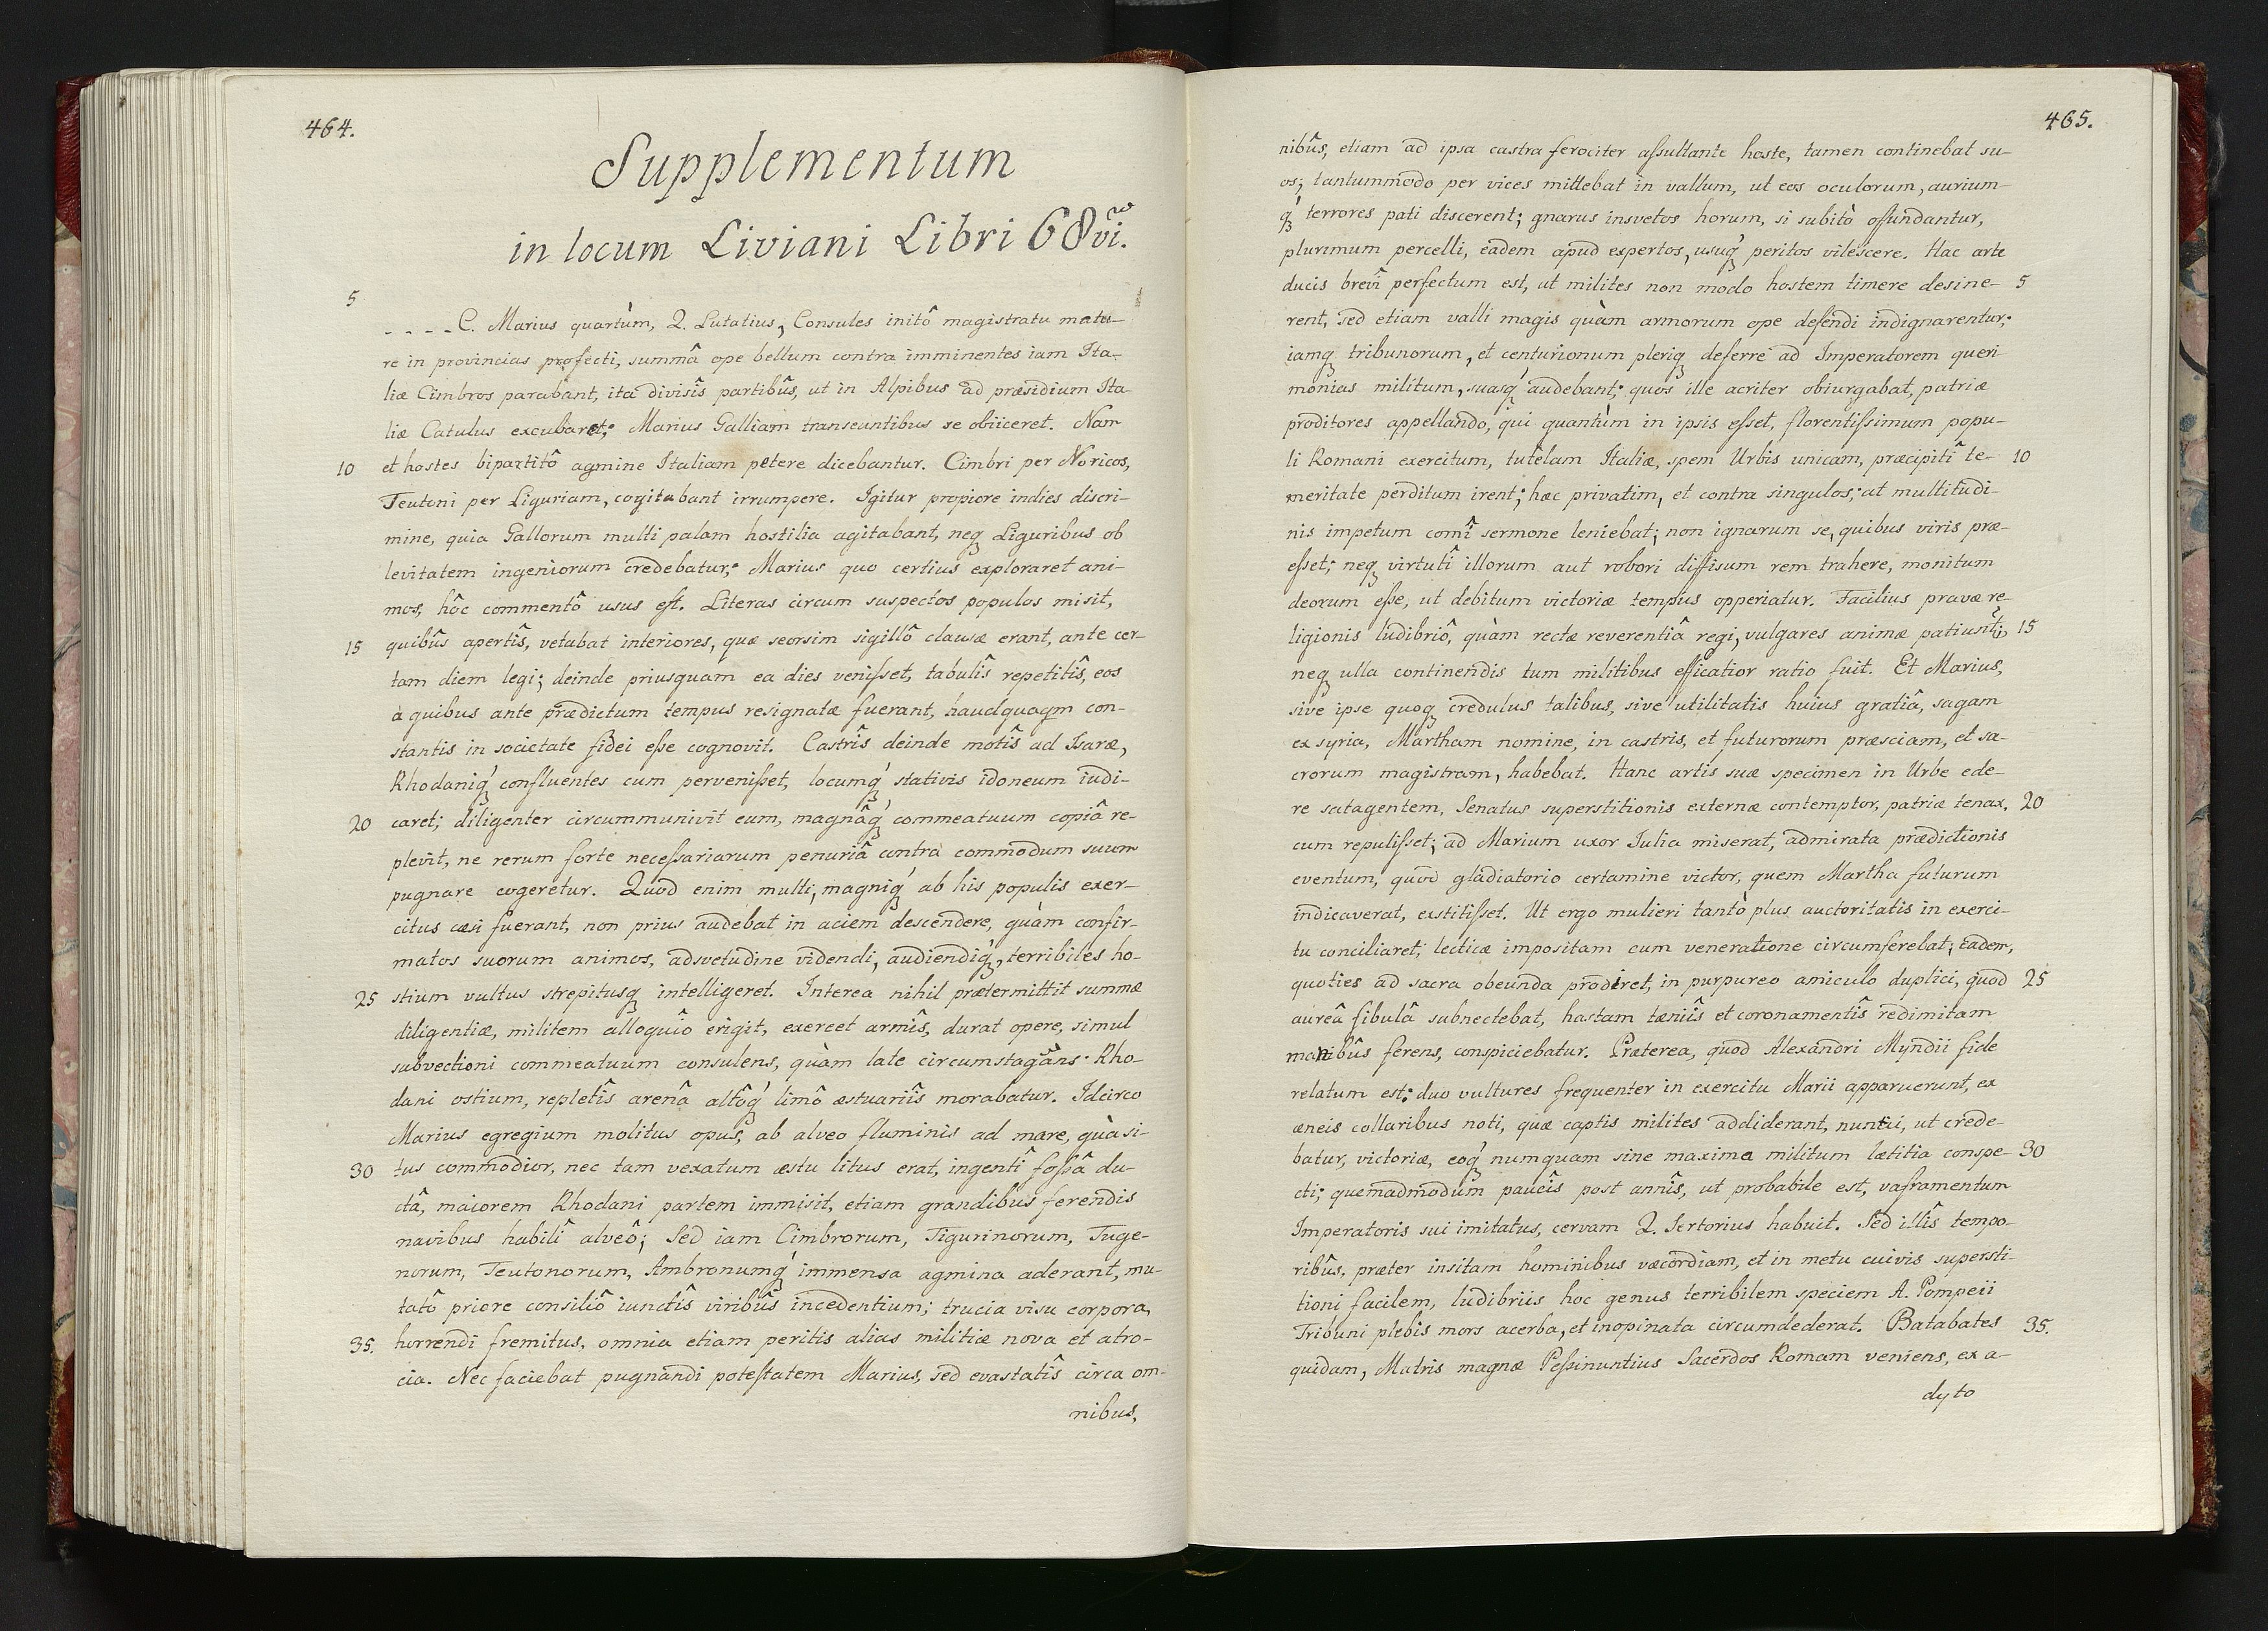 464.
Supplementum
in locum Liviani Libri 68vi.
5
- - - - C. Marius quartùm, Q. Lutatius, Consules initô magistratu matu-
re in provincias profecti, summâ ope bellum contra imminentes iam Ita-
liæ Cimbros parabant, ita divisîs partibûs, ut in Alpibus ad præsidium Ita-
liæ Catulus excubaret; Marius Galliam transeuntibus se obiiceret. Nam
10 et hostes bipartitô agmine Italiam petere dicebantur. Cimbri per Noricos,
Teutoni per Liguriam, cogitabant irrumpere. Igitur propiore indies discri-
mine, quia Gallorum multi palam hostilia agitabant, neqȝ Liguribus ob
levitatem ingeniorum credebatur; Marius quo certius exploraret ani-
mos, hôc commentô usus eſt. Literas circum suspectos populos misit,
15 quibûs apertîs, vetabat interiores, quæ seorsim sigillô clausæ erant, ante cer-
tam diem legi; deinde priusquam ea dies veniſset, tabulîs repetitîs, eos
à quibus ante prædictum tempus resignatæ fuerant, haudquaqm con-
stantis in societate fidei eſse cognovit. Castrîs deinde motîs ad Isaræ,
Rhodaniqȝ́ confluentes cum perveniſset, locumqȝ́ stativis idoneum iudi-
20 caret; diligenter circummunivit eum, magnâqȝ́ commeatuum copiâ re-
plevit, ne rerum forte neceſsariarum penuriâ contra commodum suum
pugnare cogeretur. Quod enim multi, magniqȝ́ ab his populis exer-
citus cæsi fuerant, non prius audebat in aciem descendere, quàm confir-
matos suorum animos, adsvetudine videndi, audiendiqȝ́, terribiles ho-
25 stium vultus strepitusqȝ intelligeret. Interea nihil prætermittit summæ
diligentiæ, militem alloquiô erigit, exercet armîs, durat opere, simul
subvectioni commeatuum consulens, quàm late circumstagnâns Rho-
dani ostium, repletîs arenâ altôqȝ́ limô æstuariîs morabatur. Idcirco
Marius egregium molitus opus, ab alveo fluminis ad mare, quà si-
30 tus commodior, nec tam vexatum æstu litus erat, ingentî foſsâ du-
ctâ, maiorem Rhodani partem immisit, etiam grandibus ferendis
navibus habilî alveô; Sed iam Cimbrorum, Tigurinorum, Tuge-
norum, Teutonorum, Ambronumqȝ́ immensa agmina aderant, mu-
tatô priore consiliô iunctîs viribûs incedentium; trucia visu corpora,
35. horrendi fremitus, omnia etiam peritis alias militiæ nova et atro-
cia. Nec faciebat pugnandi poteſtatem Marius, sed evastatîs circa om-
nibus,
465.
nibûs, etiam ad ipsa castra ferociter aſsultante hoste, tamen continebat su-
os; tantummodo per vices mittebat in vallum, ut eos oculorum, aurium-
qȝ́ terrores pati discerent; gnarus insvetos horum, si subitò offundantur,
plurimum percelli, eadem apud expertos, usuqȝ́ peritos vilescere. Hac arte
ducis brevî perfectum est, ut milites non modo hostem timere desine- 5
rent, sed etiam valli magis quàm armorum ope defendi indignarentur;
iamqȝ tribunorum, et centurionum pleriqȝ deferre ad Imperatorem queri-
monias militum, suasqȝ́ audebant; quos ille acriter obiurgabat, patriæ
proditores appellando, qui quantùm in ipsis eſset, florentiſsimum popu-
li Romani exercitum, tutelam Italiæ, spem Urbis unicam, præcipitî te- 10
meritate perditum irent; hæc privatim, et contra singulos; at multitudi-
nis impetum comî sermone leniebat; non ignarum se, quibus viris præ-
eſset; neqȝ virtutî illorum aut robori diffisum rem trahere, monitum
deorum eſse, ut debitum victoriæ tempus opperiatur. Facilius pravæ re-
ligionis ludibriô, quàm rectæ reverentiâ regi, vulgares animæ patiunti, 15
neqȝ ulla continendis tum militibus efficatior ratio fuit. Et Marius,
sive ipse quoqȝ credulus talibus, sive utilitatis huius gratiâ, sagam
ex syria, Martham nomine, in castris, et futurorum præsciam, et sa-
crorum magistram, habebat. Hanc artis suæ specimen in Urbe ede-
re satagentem, Senatus superstitionis externæ contemptor, patriæ tenax, 20
cum repuliſset; ad Marium uxor Iulia miserat, admirata prædictionis
eventum, quod gladiatorio certamine victor, quem Martha futurum
indicaverat, exstitiſset. Ut ergo mulieri tantò plus auctoritatis in exerci-
tu conciliaret; lecticæ impositam cum veneratione circumferebat; eadem,
quoties ad sacra obeunda prodiret, in purpureo amiculo duplici, quod 25
aureâ fibulâ subnectebat, hastam tæniîs et coronamentîs redimitam
manibûs ferens, conspiciebatur. Præterea, quod Alexandri Myndii fide
relatum est; duo vultures frequenter in exercitu Marii apparuerunt, ex
æneis collaribus noti, quæ captis milites addiderant, nuntii, ut crede-
batur, victoriæ, eoqȝ́ numquam sine maxima militum lætitia conspe- 30
cti; quemadmodum paucîs post annîs, ut probabile est, vaframentum
Imperatoris sui imitatus, cervam Q. Sertorius habuit. Sed illîs tempo-
ribûs, præter insitam hominibus væcordiam, et in metu cuivis supersti-
tioni facilem, ludibriis hoc genus terribilem speciem A. Pompeii
Tribuni plebis mors acerba, et inopinata circumdederat. Batabates 35.
quidam, Matris magnæ Peſsinuntius Sacerdos Romam veniens, ex a-
dyto